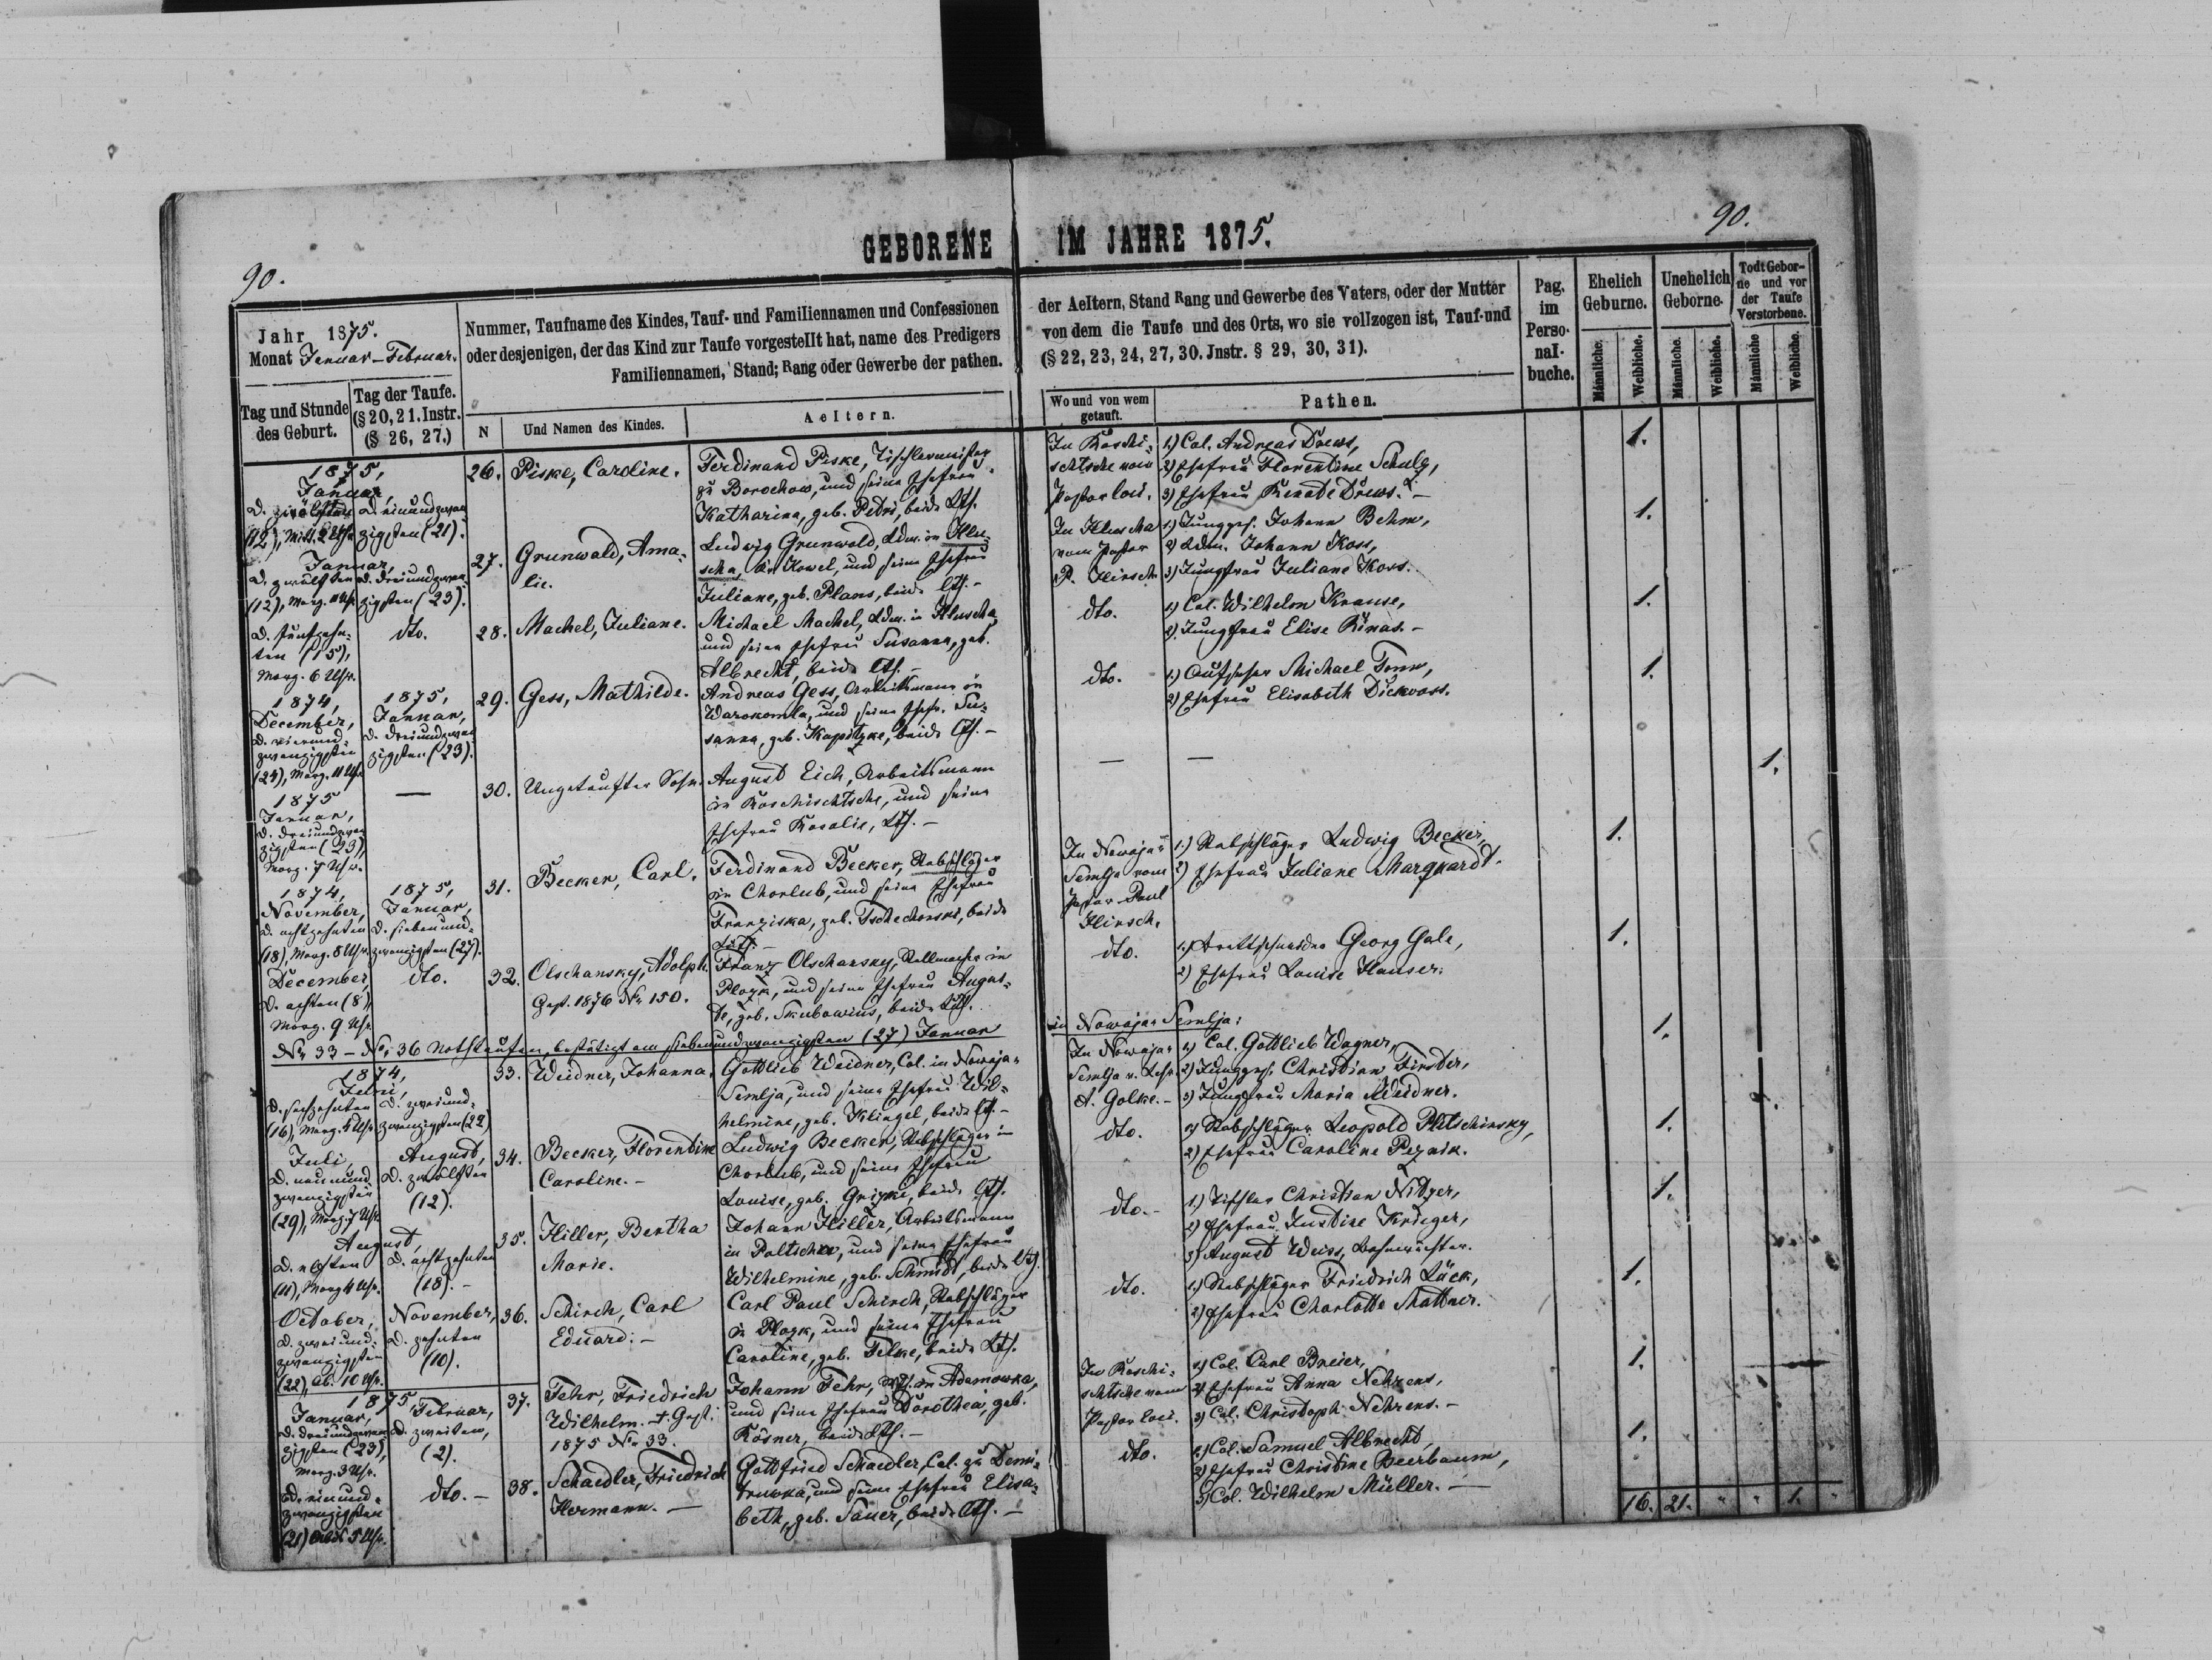 GEBORENE IM JAHRE 1875.
90.
90.
Jahr 1875.
Monat Januar-Februar.
Tag und Stunde
des Geburt.
Tag der Taufe.
(§ 20, 21. Instr.
(§ 26, 27.)
Nummer, Taufname des Kindes, Tauf- und Familiennamen und Confessionen
oder desjenigen, der das Kind zur Taufe vorgestellt hat, name des Predigers
Familiennamen, Stand; Rang oder Gewerbe der pathen.
N
Und Namen des Kindes.
Aeltern.
der Aeltern, Stand Rang und Gewerbe des Vaters, oder der Mutter
von dem die Taufe und des Orts, wo sie vollzogen ist, Tauf-und
(§ 22, 23, 24, 27, 30. Jnstr. § 29, 30, 31).
Wo und von wem
getauft.
Pathen.
Pag.
im
Perso-
nal-
buche.
Ehelich
Geburne.
Unehelich
Geborne.
Todt Gebor-
ne und vor
der Taufe
Verstorbene.
Männliche.
Weibliche.
Männliche.
Weibliche.
Männliche
Weibliche.
1875,
Januar,
d. zwölften
(12), Mitt. 2 Uhr
d. einundzwan
zigsten (21).
26.
Piske, Caroline.
Ferdinand Piske, Tischlermeister
zu Borochow, und seine Ehefrau
Katharina, geb. Pedri, beide Lth.
In Roschi-
schtsche vom
Pastor loci.
1.) Col. Andreas Drews,
2) Ehefrau Florentine Schulz,
3) Ehefrau Renate Drews. -
1.
Januar,
d. zwölften
(12), Morg. 11 Uhr
d. dreiundzwan
zigsten (23).
27.
Grunwald, Ama-
lie.
Ludwig Grunwald, Ldm. in Hlu-
scha, Kr. Kowel, und seine Ehefrau
Juliane, geb. Plans, beide Lth. -
In Hluscha
vom Pastor
P. Hirsch
1.) Junggs. Johann Behm,
2) Ldm. Johann Koss,
3) Jungfrau Juliane Koss.
1.
d. fünfzehn-
ten (15),
Morg. 6 Uhr.
dto.
28.
Machel, Juliane.
Michael Machel, Ldm. in Hluscha,
und seine Ehefrau Susanna, geb.
Albrecht, beide Lth. -
dto.
1.) Col. Wilhelm Krause,
2). Jungfrau Elise Rinas. -
1.
1874,
December,
d. vierund-
zwanzigsten
(24), Morg. 11 Uhr.
1875,
Januar,
d. dreiundzwan
zigsten (23).
29.
Gess, Mathilde.
Andreas Gess, Arbeitsmann in
Warokomla, und seine Ehefr. Su-
sanna, geb. Kapitzke, beide Lth. -
dto.
1.) Aufseher Michael Tonn,
2) Ehefrau Elisabeth Dickvoss.
1.
1875
Januar,
d. dreiundzwan
zigsten (23),
Morg. 7 Uhr.
—
30.
Ungetaufter Sohn.
August Eich, Arbeitsmann
in Roschischtsche, und seine
Ehefrau Rosalie, Lth. -
—
—
1.
1874,
November,
d. achtzehnten
(18), Morg. 8 Uhr.
1875,
Januar,
d. siebenund-
zwanzigsten (27).
31.
Becker, Carl.
Ferdinand Becker, Stabschläger
in Chorlub, und seine Ehefrau
Franziska, geb. Tschechorski, beide
Luth. -
In Nowaja-
Semlja vom
Pastor Paul
Hirsch.
1.) Stabschläger Ludwig Becker,
2) Ehefrau Juliane Marquardt.
1.
December,
d. achten (8),
Morg. 9 Uhr
dto.
32.
Olschansky, Adolph.
Gest. 1876 No. 150.
Franz Olschansky, Stellmacher in
Plozk, und seine Ehefrau Augus-
te, geb. Skubowius, beide Lth.
dto.
1.) Brettschneider Georg Gale,
2) Ehefrau Louise Hauser.
1.
No. 33 - No. 36 Nothtaufen, bestätigt am siebenundzwanzigsten (27) Januar in Nowaja-Semlja:
1874,
Juni,
d. sechzehnten
(16), Morg. 5 Uhr
d. zweiund-
zwanzigsten (22)
33.
Weidner, Johanna.
Gottlieb Weidner, Col. in Nowaja-
Semlja, und seine Ehefrau Wil-
helmine, geb. Klingel, beide Lth. -
In Nowaja-
Semlja v. Lehr.
A. Golke. -
1) Col. Gottlieb Wagner,
2) Junggs. Christian Finster,
3) Jungfrau Maria Weidner.
1.
Juli,
d. neunund
zwanzigsten
(29), Morg. 7 Uhr
August,
d. zwölften
(12).
34.
Becker, Florentine
Caroline. -
Ludwig Becker, Stabschläger in
Chorlub, und seine Ehefrau
Louise, geb. Grizke, beide Lth.
dto.
1) Stabschläger Leopold Pletschinsky,
2) Ehefrau Caroline Peznik.
1.
August,
d. elften
(11), Morg. 4 Uhr.
d. achtzehnten
(18). -
35.
Hiller, Bertha
Marie.
Johann Hiller, Arbeitsmann
in Poltscha, und seine Ehefrau
Wilhelmine, geb. Schmidt, beide Lth.
dto. -
1.) Tischler Christian Nitzer,
2) Ehefrau Justine Krieger,
3) August Weiss, Bahnwächter.
1.
October,
d. zweiund-
zwanzigsten
(22), Ab. 10 Uhr.
November,
d. zehnten
(10).
36.
Schirch, Carl
Eduard: -
Carl Paul Schirch, Stabschläger
in Plozk, und seine Ehefrau
Caroline, geb. Felke, beide Lth.
dto.
1.) Stabschläger Friedrich Lück,
2) Ehefrau Charlotte Mattner.
1.
1875,
Januar,
d. dreiundzwan
zigsten (23),
Morg. 3 Uhr.
Februar,
d. zweiten,
(2).
37.
Fehr, Friedrich
Wilhelm. + Gest.
1875 No. 33.
Johann Fehr, in Adamowka,
und seine Ehefrau Dorothea, geb.
Rösner, beide Lth. -
In Roschi-
schtsche vom
Pastor loci.
1) Col. Carl Breier,
2) Ehefrau Anna Nehrens,
3) Col. Christoph Nehrens. -
1.
d. einund-
zwanzigsten
(21) Abds 5 Uhr.
dto. -
38.
Schaedler, Friedrich
Hermann. -
Gottfried Schaedler, Col. zu Demi-
truwka, und seine Ehefrau Elisa-
beth, geb. Sauer, beide Lth. -
dto.
1) Col. Samuel Albrecht,
2) Ehefrau Christine Beerbaum,
3) Col. Wilhelm Müller. -
1.
16. 21. " " 1. "